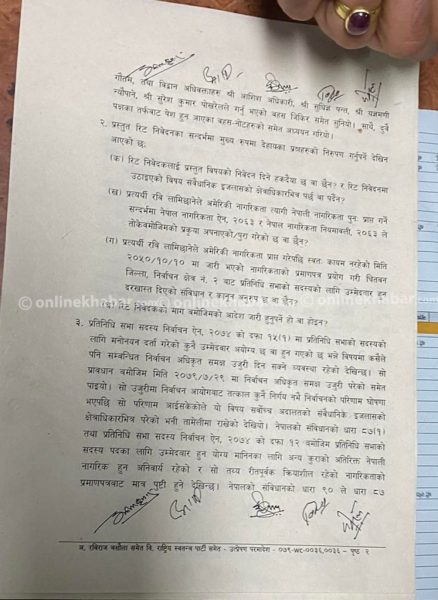 गौतम, तथा विद्वान अधिवक्ताहरू श्री आशिश अधिकारी, श्री सुधिन्न पन्त, श्री यज्ञमणी
न्यौपाने, श्री सुरेश कुमार पोखरेलले गर्नु भएको बहस जिकिर समेत सुनियो। साथै, दुवै
पक्षका तर्फबाट पेश हुन आएका बहस-नोटहरूको समेत अध्ययन गरियो।
२. प्रस्तुत रिट निवेदनका सन्दर्भमा मुख्य रुपमा देहायका प्रश्नहरूको निरुपण गर्नुपर्ने देखिन
आएको छ:
(क) रिट निवेदकलाई प्रस्तुत विषयको निवेदन दिने हकदैया छ वा छैन? र रिट निवेदनमा
उठाइएको विषय संवैधानिक इजलासको क्षेत्राधिकारभित्र पर्छ वा पर्दैन?
(ख) प्रत्यर्थी रवि लामिछानेले अमेरिकी नागरिकता त्यागी नेपाली नागरिकता पुनः प्राप्त गर्ने
सन्दर्भमा नेपाल नागरिकता ऐन, २०६३ र नेपाल नागरिकता नियमावली, २०६३ ले
तोकेबमोजिमको प्रकृया अपनाएको/पुरा गरेको छ वा छैन?
(ग) प्रत्यर्थी रवि लामिछानेले अमेरिकी नागरिकता प्राप्त गरेपछि स्वतः कायम नरहेको मिति
२०५०/१०/१० मा जारी भएको नागरिकताको प्रमाणपत्र प्रयोग गरी चितवन
जिल्ला, निर्वाचन क्षेत्र नं. २ बाट प्रतिनिधि सभाको सदस्यको लागि उम्मेदवारी
दरखास्त दिएको संविधान र कानून अनुरुप छ वा छैन?
(घ) रिट निवेदकको माग बमोजिमको आदेश जारी हुनुपर्ने हो वा होइन?
onlinekhabar.com
onlinekhabar.com
३. प्रतिनिधि सभा सदस्य निर्वाचन ऐन, २०७४ को दफा १५(१) मा प्रतिनिधि सभाको सदस्यको
लागि मनोनयन दर्ता गरेको कुनै उम्मेदवार अयोग्य छ वा हुन गएको छ भन्ने विषयमा कसैले
पनि सम्बन्धित निर्वाचन अधिकृत समक्ष उजुरी दिन सक्ने व्यवस्था रहेको देखिन्छ। सो
प्रावधान बमोजिम मिति २०७९/७/२९ मा निर्वाचन अधिकृत समक्ष उजुरी परेको समेत
पाइयो। सो उजुरीमा निर्वाचन आयोगबाट तत्काल कुनै निर्णय नभै निर्वाचनको परिणाम घोषणा
भएपछि सो परिणाम आईसकेकोले यो विषय सर्वोच्च अदालतको संवैधानिक इजलासको
क्षेत्राधिकारभित्र परेको भनी तामेलीमा राखेको देखियो। नेपालको संविधानको धारा ८७(१)
तथा प्रतिनिधि सभा सदस्य निर्वाचन ऐन, २०७४ को दफा १२ बमोजिम प्रतिनिधि सभाको
सदस्य पदका लागि उम्मेदवार हुन योग्य मानिनका लागि अन्य कुराको अतिरिक्त नेपाली
नागरिक हुन अनिवार्य रहेको र सो तथ्य रीतपूर्वक क्रियाशील रहेको नागरिकताको
प्रमाणपत्रबाट मात्र पुष्टी हुने देखिन्छ। नेपालको संविधानको धारा ९० ले धारा ८७
समेत वि. राष्ट्रिय स्वतन्त्र पार्टी समेत - उत्प्रेषण परमादेश - ०७९-WC-००३६,००३६ - पृष्ठ २